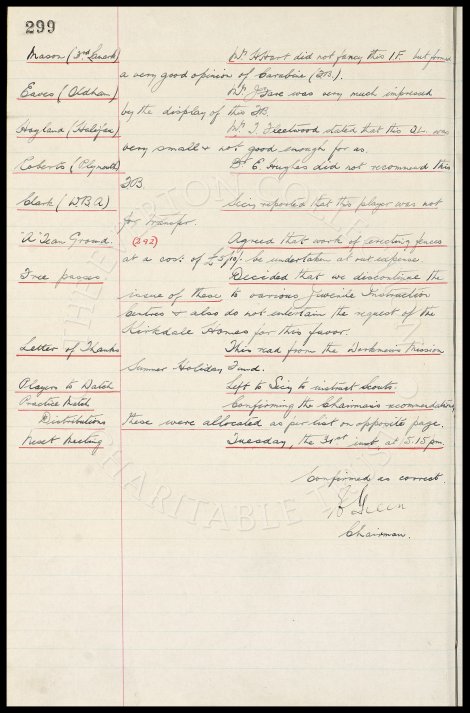 299
Mason (3rd Lanark) Mr. H. Hart did not fancy this I.F. but formed
a very good opinion of Carabine (RB.).
Eaves (Oldham) Mr. Gare was very much impressed
by the display of this FB
Hoyland (Halifax) Mr. T. Fleetwood stated that this OL. was
very small & not good enough for us.
Roberts (Plymouth) Mr E. Hughes did not recommend this
FB.
Clark (WBA) Secy reported that this player was not
for transfer.
"A" Team Ground. (292) Agreed that work of erecting fences
at a cost of £5/10/- be undertaken at our expense
Free passes Decided that we discontinue the
issue of these to various Juvenile Instruction
Centres & also do not entertain the request of the
Kirkdale Homes for this favor.
Letter of Thanks This read from the Workmens Mission
Summer Holiday Fund.
Players to Watch Left to Secy to instruct scouts.
Practice Match Confirming the Chairmans recommendations
Distributions these were allocated as per list on opposite page.
Next Meeting Tuesday, the 31st inst, at 5.15 pm.
Confirmed as correct.
Green
Chairman.
THE EVERTON COLLECTION
CHARITABLE TRUST